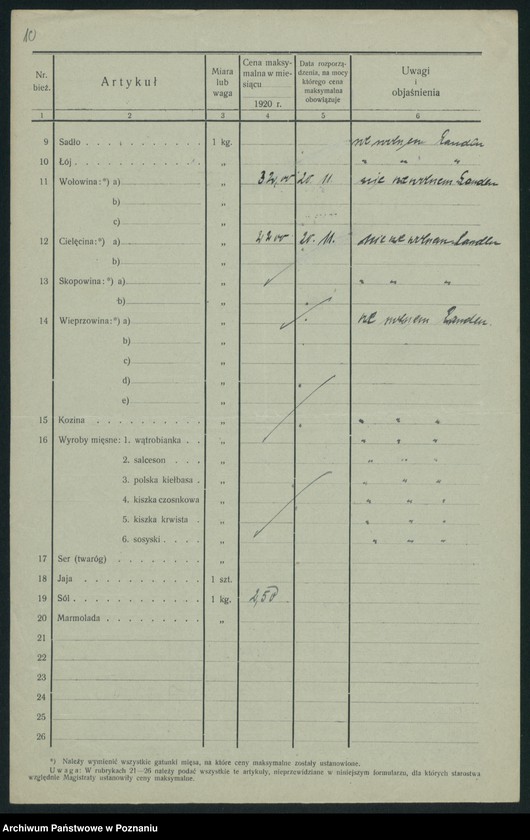 10
Nr. bież. Artykuł Miara lub waga Cena maksymalna w miesiącu 1920 r. Data rozporządzenia, na mocy którego cena maksymalna obowiązuje Uwagi i objaśnienia
1 2 3 4 5 6
9 Sadło 1 kg.
10 Łój „ „ „ „
11 Wołowina:*) a) „ 32,00 20 11. nie
b) „
c) „
12 Cielęcina:*) a) „ 20. 11.
b) „
13 Skopowina:*) a) „ „ „ „
b) „
14 Wieprzowina:*) a) „
b) „
c) „
d) „
e) „
15 Kozina „ „ „ „
16 Wyroby mięsne: 1. wątrobianka „ „ „ „
2. salceson „ „ „ „
3. polska kiełbasa „ „ „ „
4. kiszka czosnkowa „ „ „ „
5. kiszka krwista „ „ „ „
6. sosyski „ „ „ „
17 Ser (twaróg) „
18 Jaja 1 szt.
19 Sól 1 kg. 2,50
20 Marmolada „
21
22
23
24
25
26
*) Należy wymienić wszystkie gatunki mięsa, na które ceny maksymalne zostały ustanowione.
Uwaga: W rubrykach 21—26 należy podać wszystkie te artykuły, nieprzewidziane w niniejszym formularzu, dla których starostwa
względnie Magistraty ustanowiły ceny maksymalne.
Archiwum Państwowe w Poznaniu
szukajwarchiwach.gov.pl